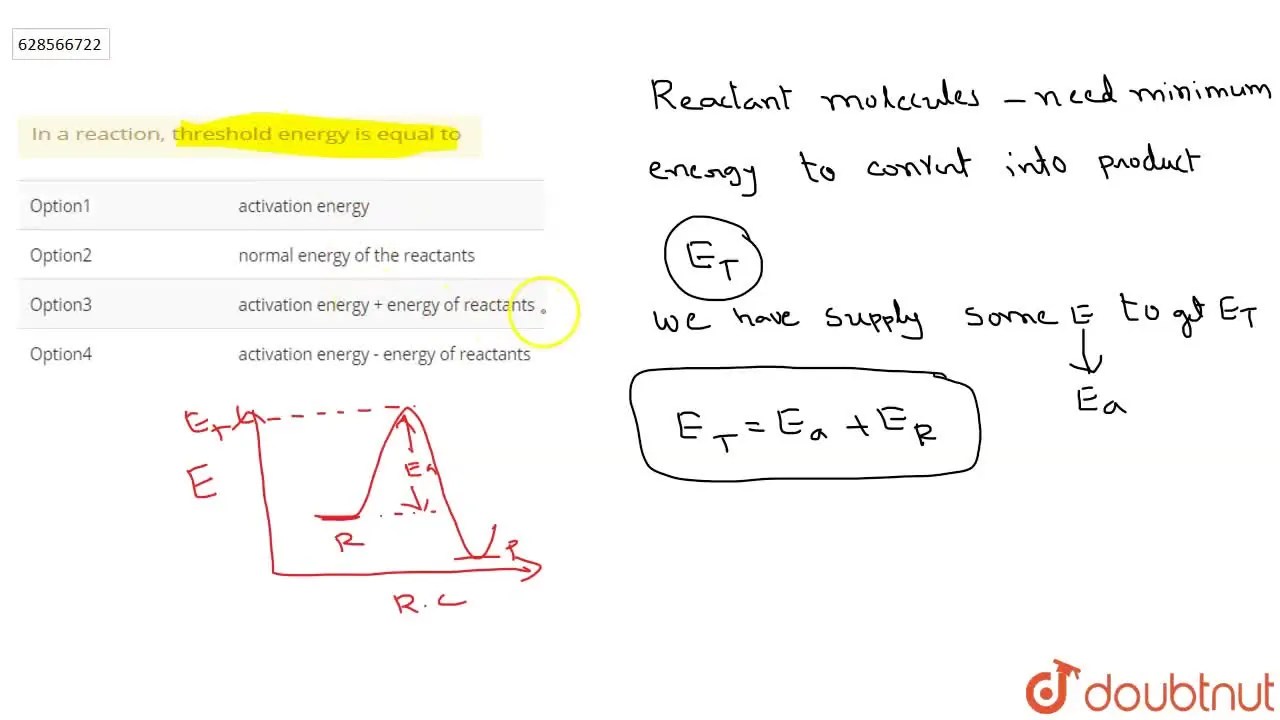 628566722
In a reaction, threshold energy is equal to
Option1 activation energy
Option2 normal energy of the reactants
Option3 activation energy + energy of reactants
Option4 activation energy - energy of reactants
Reactant molecules - need minimum
energy to convert into product
E_T
we have supply some E to get E_T
Ea
E_T = E_a + E_R
E_T
Ea
E
R
P
R.C
doubtnut